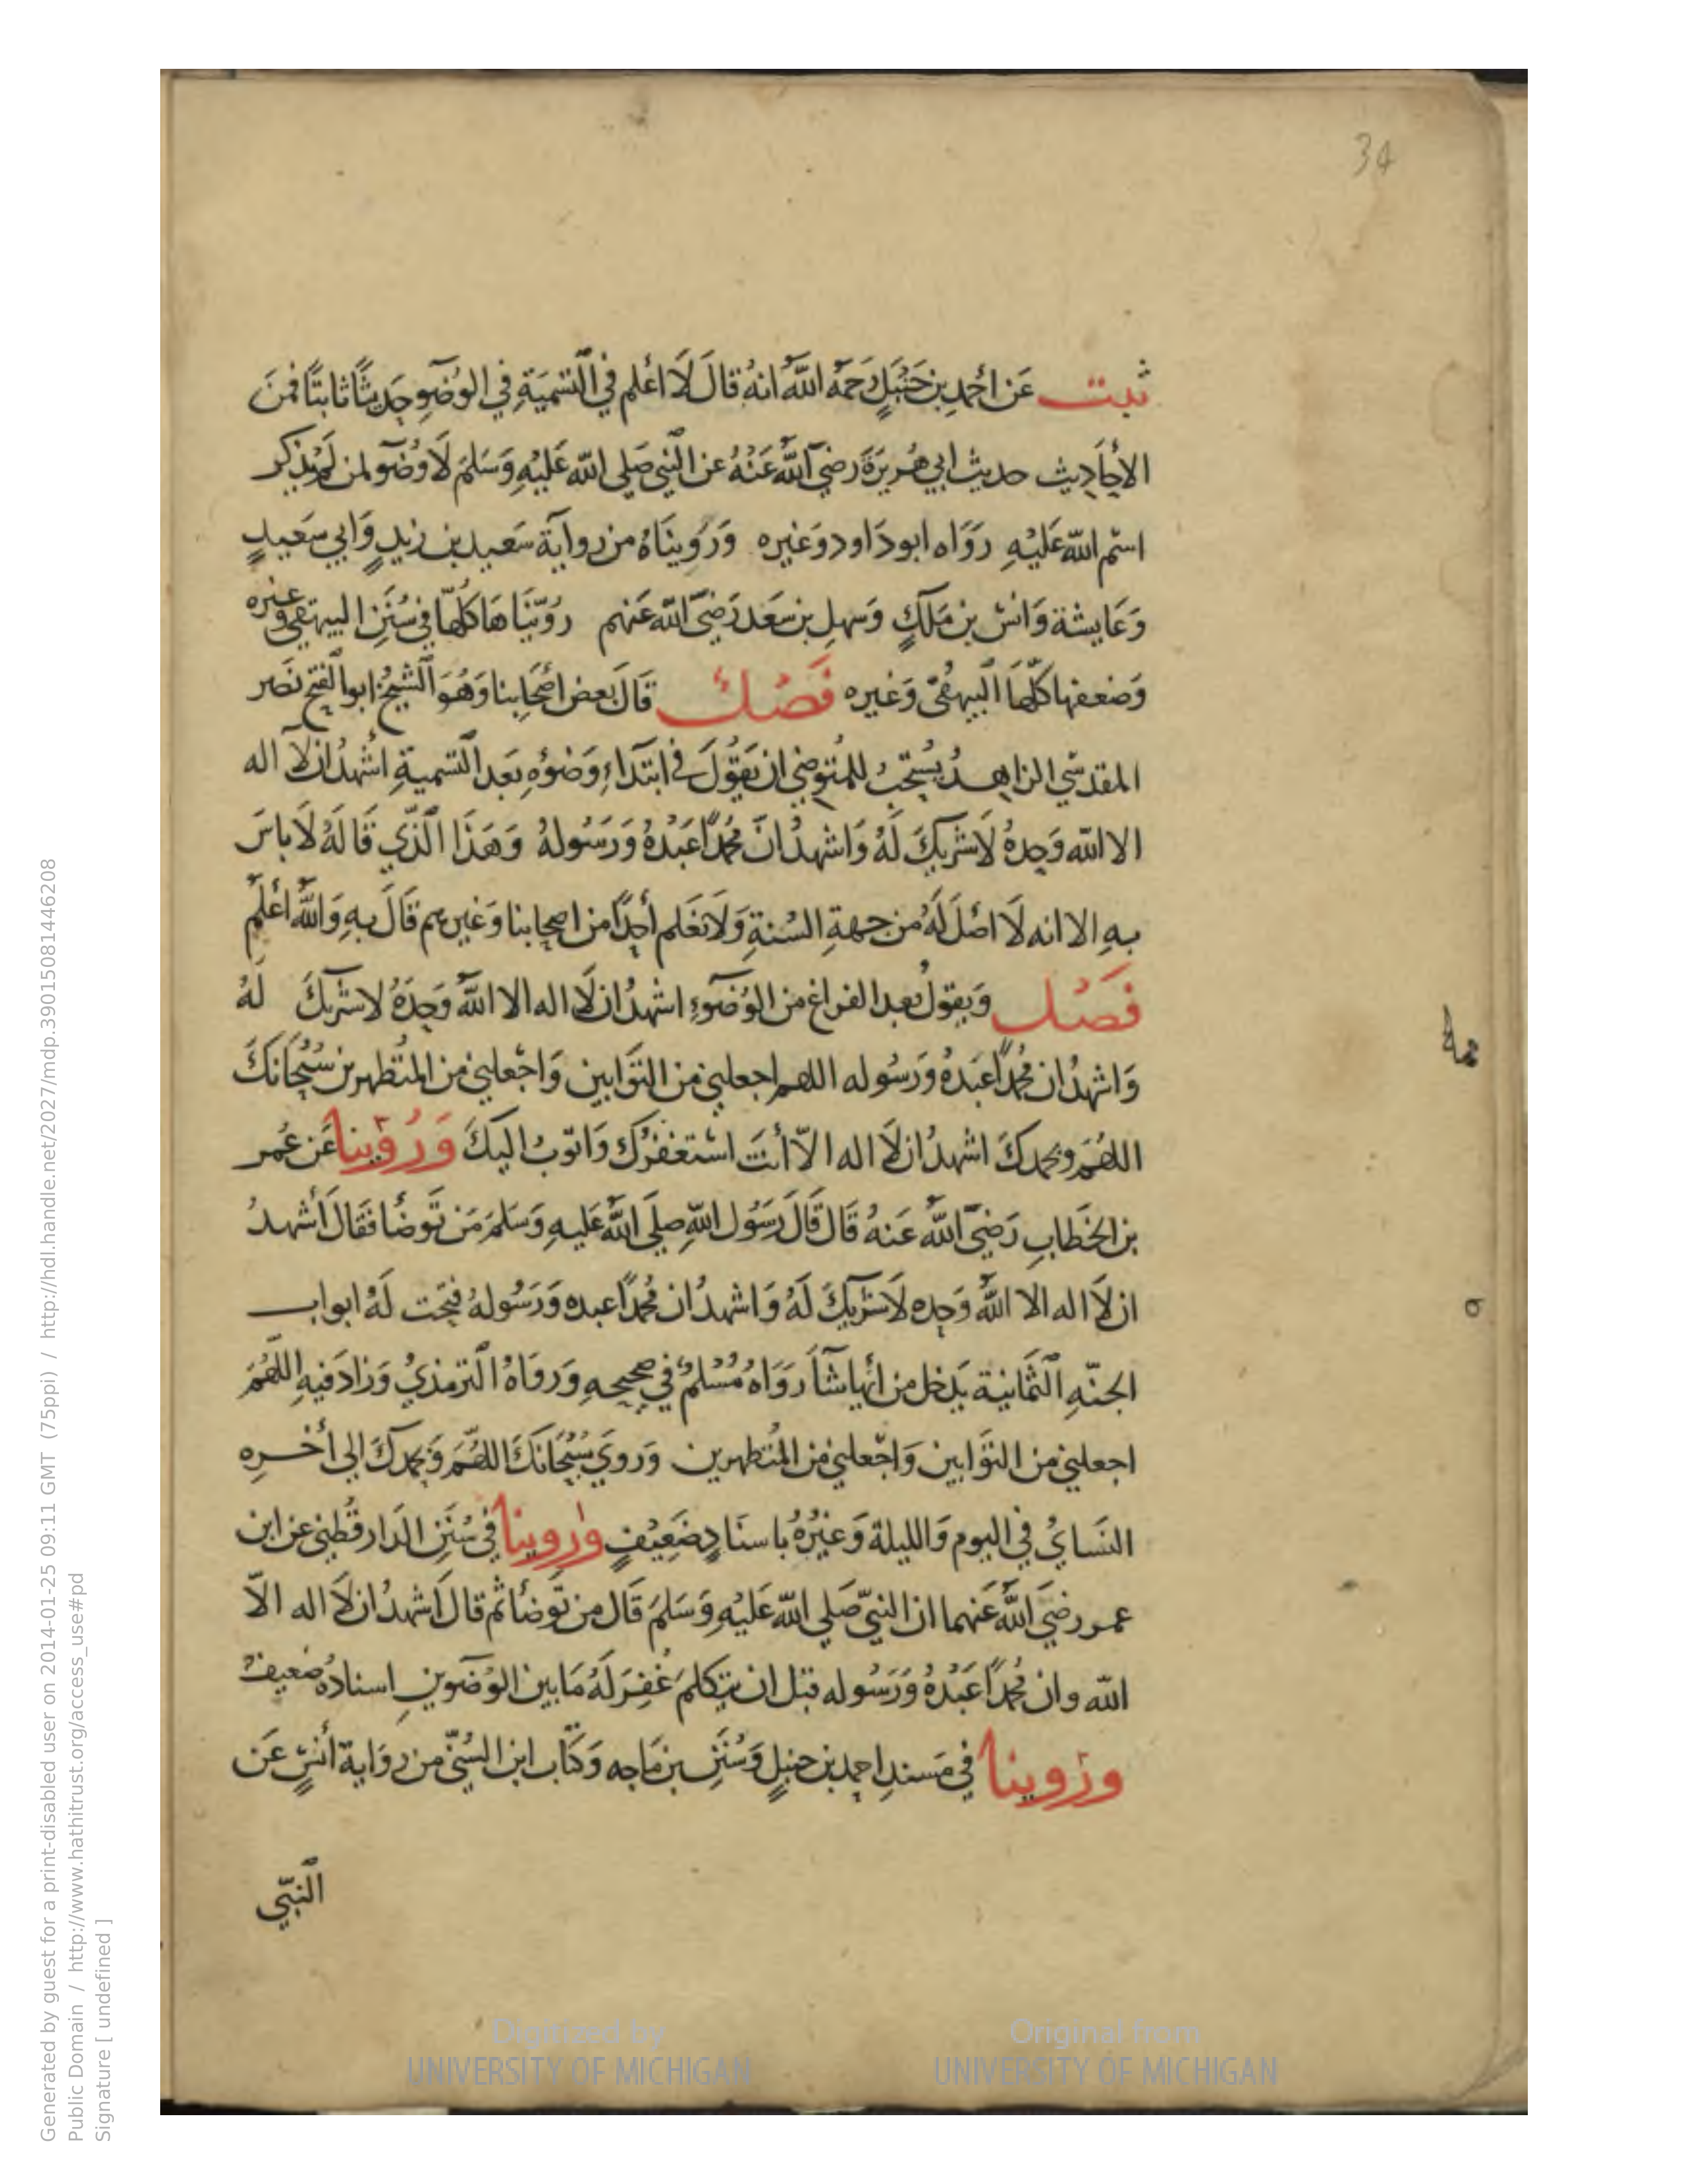 34
ثبت عَن أحمدِ بن حَنْبَلٍ رَحمَهُ اللهُ انهُ قالَ لَا أعلم في التسْمَيَةِ في الوُضوءِ حَديثًا ثابتًا فمنَ
الأحَادِيث حديث ابي هُريرَةَ رضيَ اللهُ عَنْهُ عن النبي صَلى الله عَليْهِ وَسَلمَ لَا وُضوٓء لمن لَمْ يذكر
اسْم الله عَليْهِ رَوَاه ابو دَاود وَغيره وَرَوينَاهُ من رِوايَة سَعيد بن زيدٍ وَابي سَعيدٍ
وَعَايشة وَانسْ بن مَلكٍ وَسَهل بن سَعَد رَضيَ الله عَنهم رُوّينَا هَا كُلهَا في سُنَنِ البيهَقي وغيره
وَضعفها كلّهَا البيهقيّ وَغيره فَصْل قَالَ بعض أصْحَابنا وَهُوَ الشيخُ ابو الفتح نصَر
المقدسّي الزاهدُ يسُتحَبُ للمُتوضي ان يَقوُلَ في ابتدَاءِ وَضُوُهِ بَعَد التسميةِ اشْهدُ ان لَا اله
الا الله وَحِدهُ لَا شَرْيكَ لَهُ وَاشهدُ انَّ مُحمدًا عَبْدُهُ وَرَسُولهُ وَهَذَا الَّذي قَالهُ لَا باسَ
بهِ الا انه لَا اصْلَ لَهُ من جهةِ السُنةِ وَلَا نعَلم أحِدًا من اصحابنا وَغيرهم قَالَ بهِ وَاللهُ أعْلَمْ
فَصْل وَيقولُ بعد الفراغ من الوُضوٓءِ اشهدُ ان لَا اله الا اللهُ وَحِدَهُ لا شَرْيكَ لَهُ
وَاشهدُ ان مُحمدًا عَبدهُ وَرَسُوله اللهم اجعلني من التوّابين وَاجْعلني من المُتطهرين سُبْحَانَكَ
اللهُمَ وبحمدكَ اشهدُ ان لَا اله الاّ أنتَ استْغفرُك وَاتوبُ اليكَ وَرُوّينا عَن عُمر
بن الخطَابِ رَضيَ اللهُ عَنهُ قَالَ قَالَ رَسُول اللهِ صلَى اللهُ عَليهِ وَسَلمَ مَن تَوضأ فقَالَ أشهدُ
ان لَا اله الا اللهُ وَحِده لَا شَرْيكَ لَهُ وَاشهدُ ان مُحمدًا عبده وَرَسُولهُ فتِحَت لَهُ ابواب
الجنّهِ الثمَانية يَدخل من أيها شآَ رَوَاهُ مُسْلمٌ في صحيحهِ وَروَاهُ الترمذيُ وَزادَ فيهِ اللهُمَ
اجعلني من التوّابين وَاجْعلني من المُتطهرين وَروَي سُبْحَانكَ اللهُمَّ وَبحمدكَ الى أخرِه
النَسايُ في اليوم وَالليلة وَغيْرُهُ باسنَادٍ ضَعِيفٍ وروينا في سُنَنِ الدَار قُطني عن ابن
عمر رضيَ اللهُ عَنهما ان النبيّ صَلى الله عَليْهِ وَسَلمَ قَال من تَوضأ ثم قالَ اشهدُ ان لَا اله الاّ
الله وان مُحمدًا عَبْدُهُ وَرَسُوله قبَل ان يتكلمَ غُفِرَ لَهُ مَا بين الوُضوين اسنادهُ ضعيفْ
ورُوينا في مَسندِ احمد بن حنبلٍ وَسُنَنِ بن مَاجه وَكتَاب ابن السُنّي من روَاية أنسٍ عَن
النبّي
Generated by guest for a print-disabled user on 2014-01-25 09:11 GMT (75ppi) / http://hdl.handle.net/2027/mdp.39015081446208
Public Domain / http://www.hathitrust.org/access_use#pd
Signature [ undefined ]
Digitized by
UNIVERSITY OF MICHIGAN
Original from
UNIVERSITY OF MICHIGAN